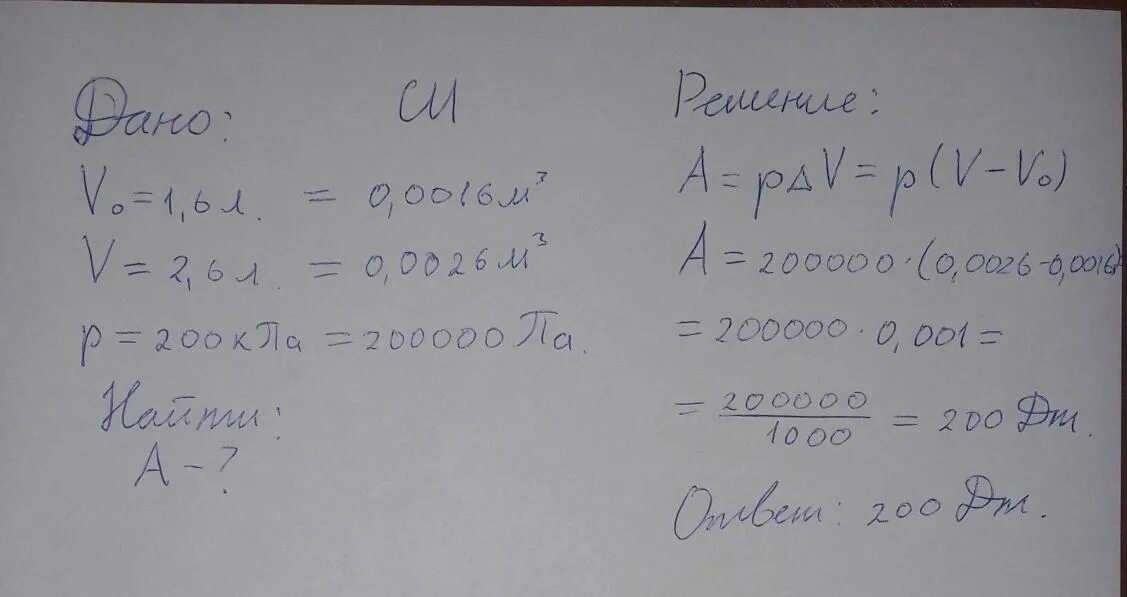 Дано:
СИ
V₀ = 1,6 л. = 0,0016 м³
V = 2,6 л. = 0,0026 м³
p = 200 кПа = 200000 Па.
Найти:
A - ?
Решение:
A = pΔV = p(V - V₀)
A = 200000 · (0,0026 - 0,0016)
= 200000 · 0,001 =
= 200000/1000 = 200 Дж.
Ответ: 200 Дж.